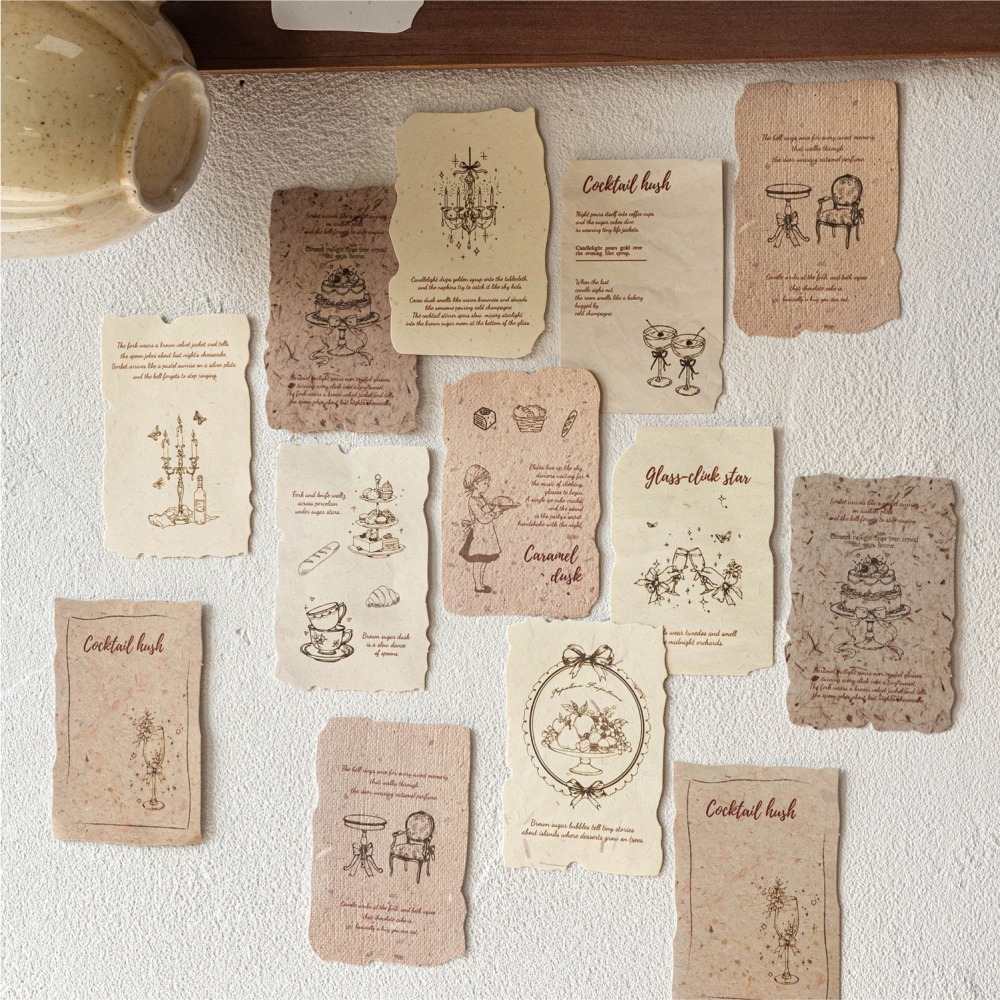 Candlelight drips golden syrup onto the tablecloth,
and the napkins try to catch it like shy kids.
Cocoa dusk smells like warm brownies and sounds
like someone pouring cold champagne.
The cocktail stirrer spins slow, mixing starlight
into the brown sugar moon at the bottom of the glass.
Cocktail hush
Night pours itself into coffee cups
and the sugar cubes dive
in wearing tiny life jackets.
Candlelight pours gold over
the evening like syrup.
When the last
candle sighs out,
the room smells like a bakery
hugged by
cold champagne.
The bell rings once for every sweet memory
that walks through
the door, wearing caramel perfume.
Candle winks at the fork, and both agree
that chocolate cake is
basically a hug you can eat.
Sorbet arrives like a pastel sunrise
and the bell forgets to stop ringing.
Caramel twilight drips over crystal
and gaps
turning every clink into a tiny sunset.
The fork wears a brown velvet jacket and tells
the spoon jokes about last night's cheesecake.
The fork wears a brown velvet jacket and tells
the spoon jokes about last night's cheesecake.
Sorbet arrives like a pastel sunrise on a silver plate,
and the bell forgets to stop ringing.
Fork and knife waltz
across porcelain
under sugar stars.
Brown sugar dusk
is a slow dance
of spoons.
Plates line up like shy
dancers waiting for
the music of clinking
glasses to begin.
A single ice cube cracks
and the sound
is the party's secret
handshake with the night.
Caramel
dusk
Glass-clink star
wear tuxedos and smell
midnight orchards.
Sorbet arrives like a pastel sunrise
and the bell forgets to stop ringing.
Caramel twilight drips over crystal
turning every clink into a tiny sunset.
The fork wears a brown velvet jacket and tells
the spoon jokes about last night's cheesecake.
Cocktail hush
The bell rings once for every sweet memory
that walks through
the door, wearing caramel perfume.
Candle winks at the fork, and both agree
that chocolate cake is
basically a hug you can eat.
Brown sugar bubbles tell tiny stories
about islands where desserts grow on trees.
Cocktail hush